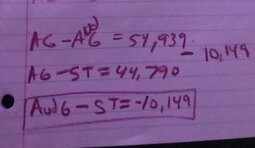 AG - AWG = 54,939
- 10,149
AG - ST = 44,790
AWG - ST = -10,149